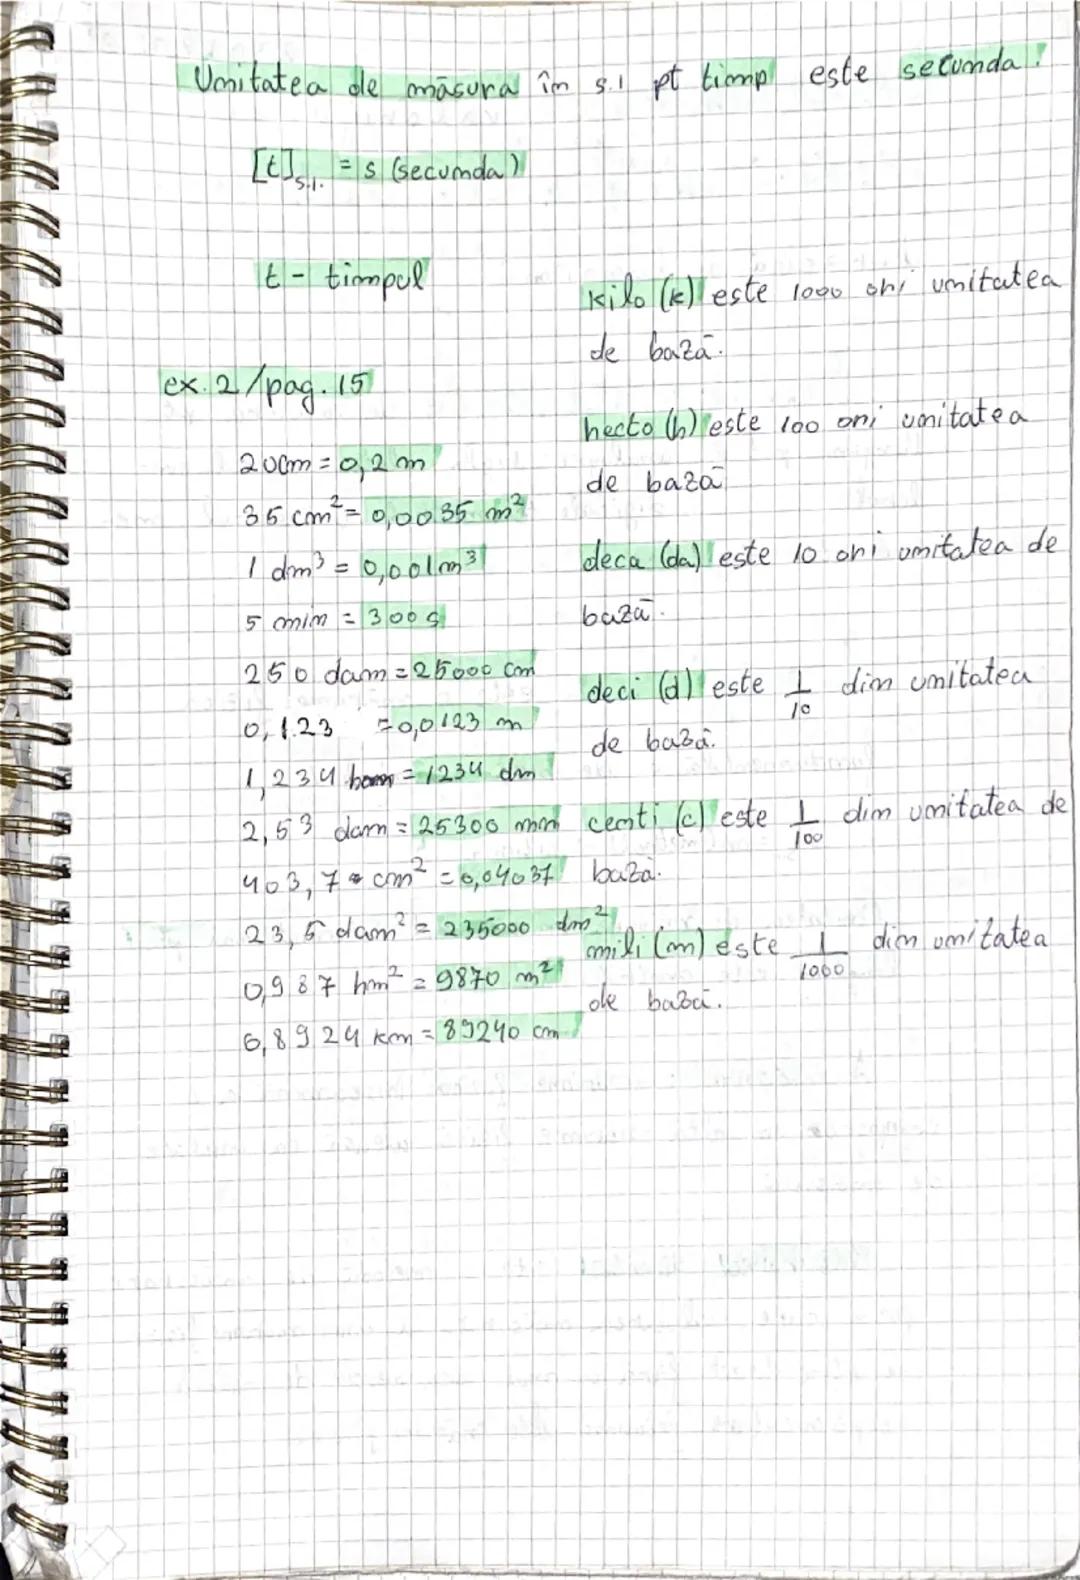 Unitatea de măsura în s.i pt timp este secunda!
[t]s.i. = s (secunda)
t - timpul
ex. 2/pag. 15
20cm = 0,2 m
35 cm² = 0,0035 m²
1 dm³ = 0,001m³
5 min = 300 s
250 dam = 25000 cm
0,123 = 0,0123 m
1,234 hm = 1234 dm
2,53 dam = 25300 mm
403,7 cm² = 0,04037
23,5 dam² = 235000 dm²
0,987 hm² = 9870 m²
6,8924 km = 89240 cm
kilo (k) este 1000 ori unitatea
de bază.
hecto (h) este 100 ori unitatea
de bază
deca (da) este 10 ori unitatea de
bază.
deci (d) este 1/10 din unitatea
de bază.
centi (c) este 1/100 din unitatea de
bază.
mili (m) este 1/1000 din unitatea
de bază.